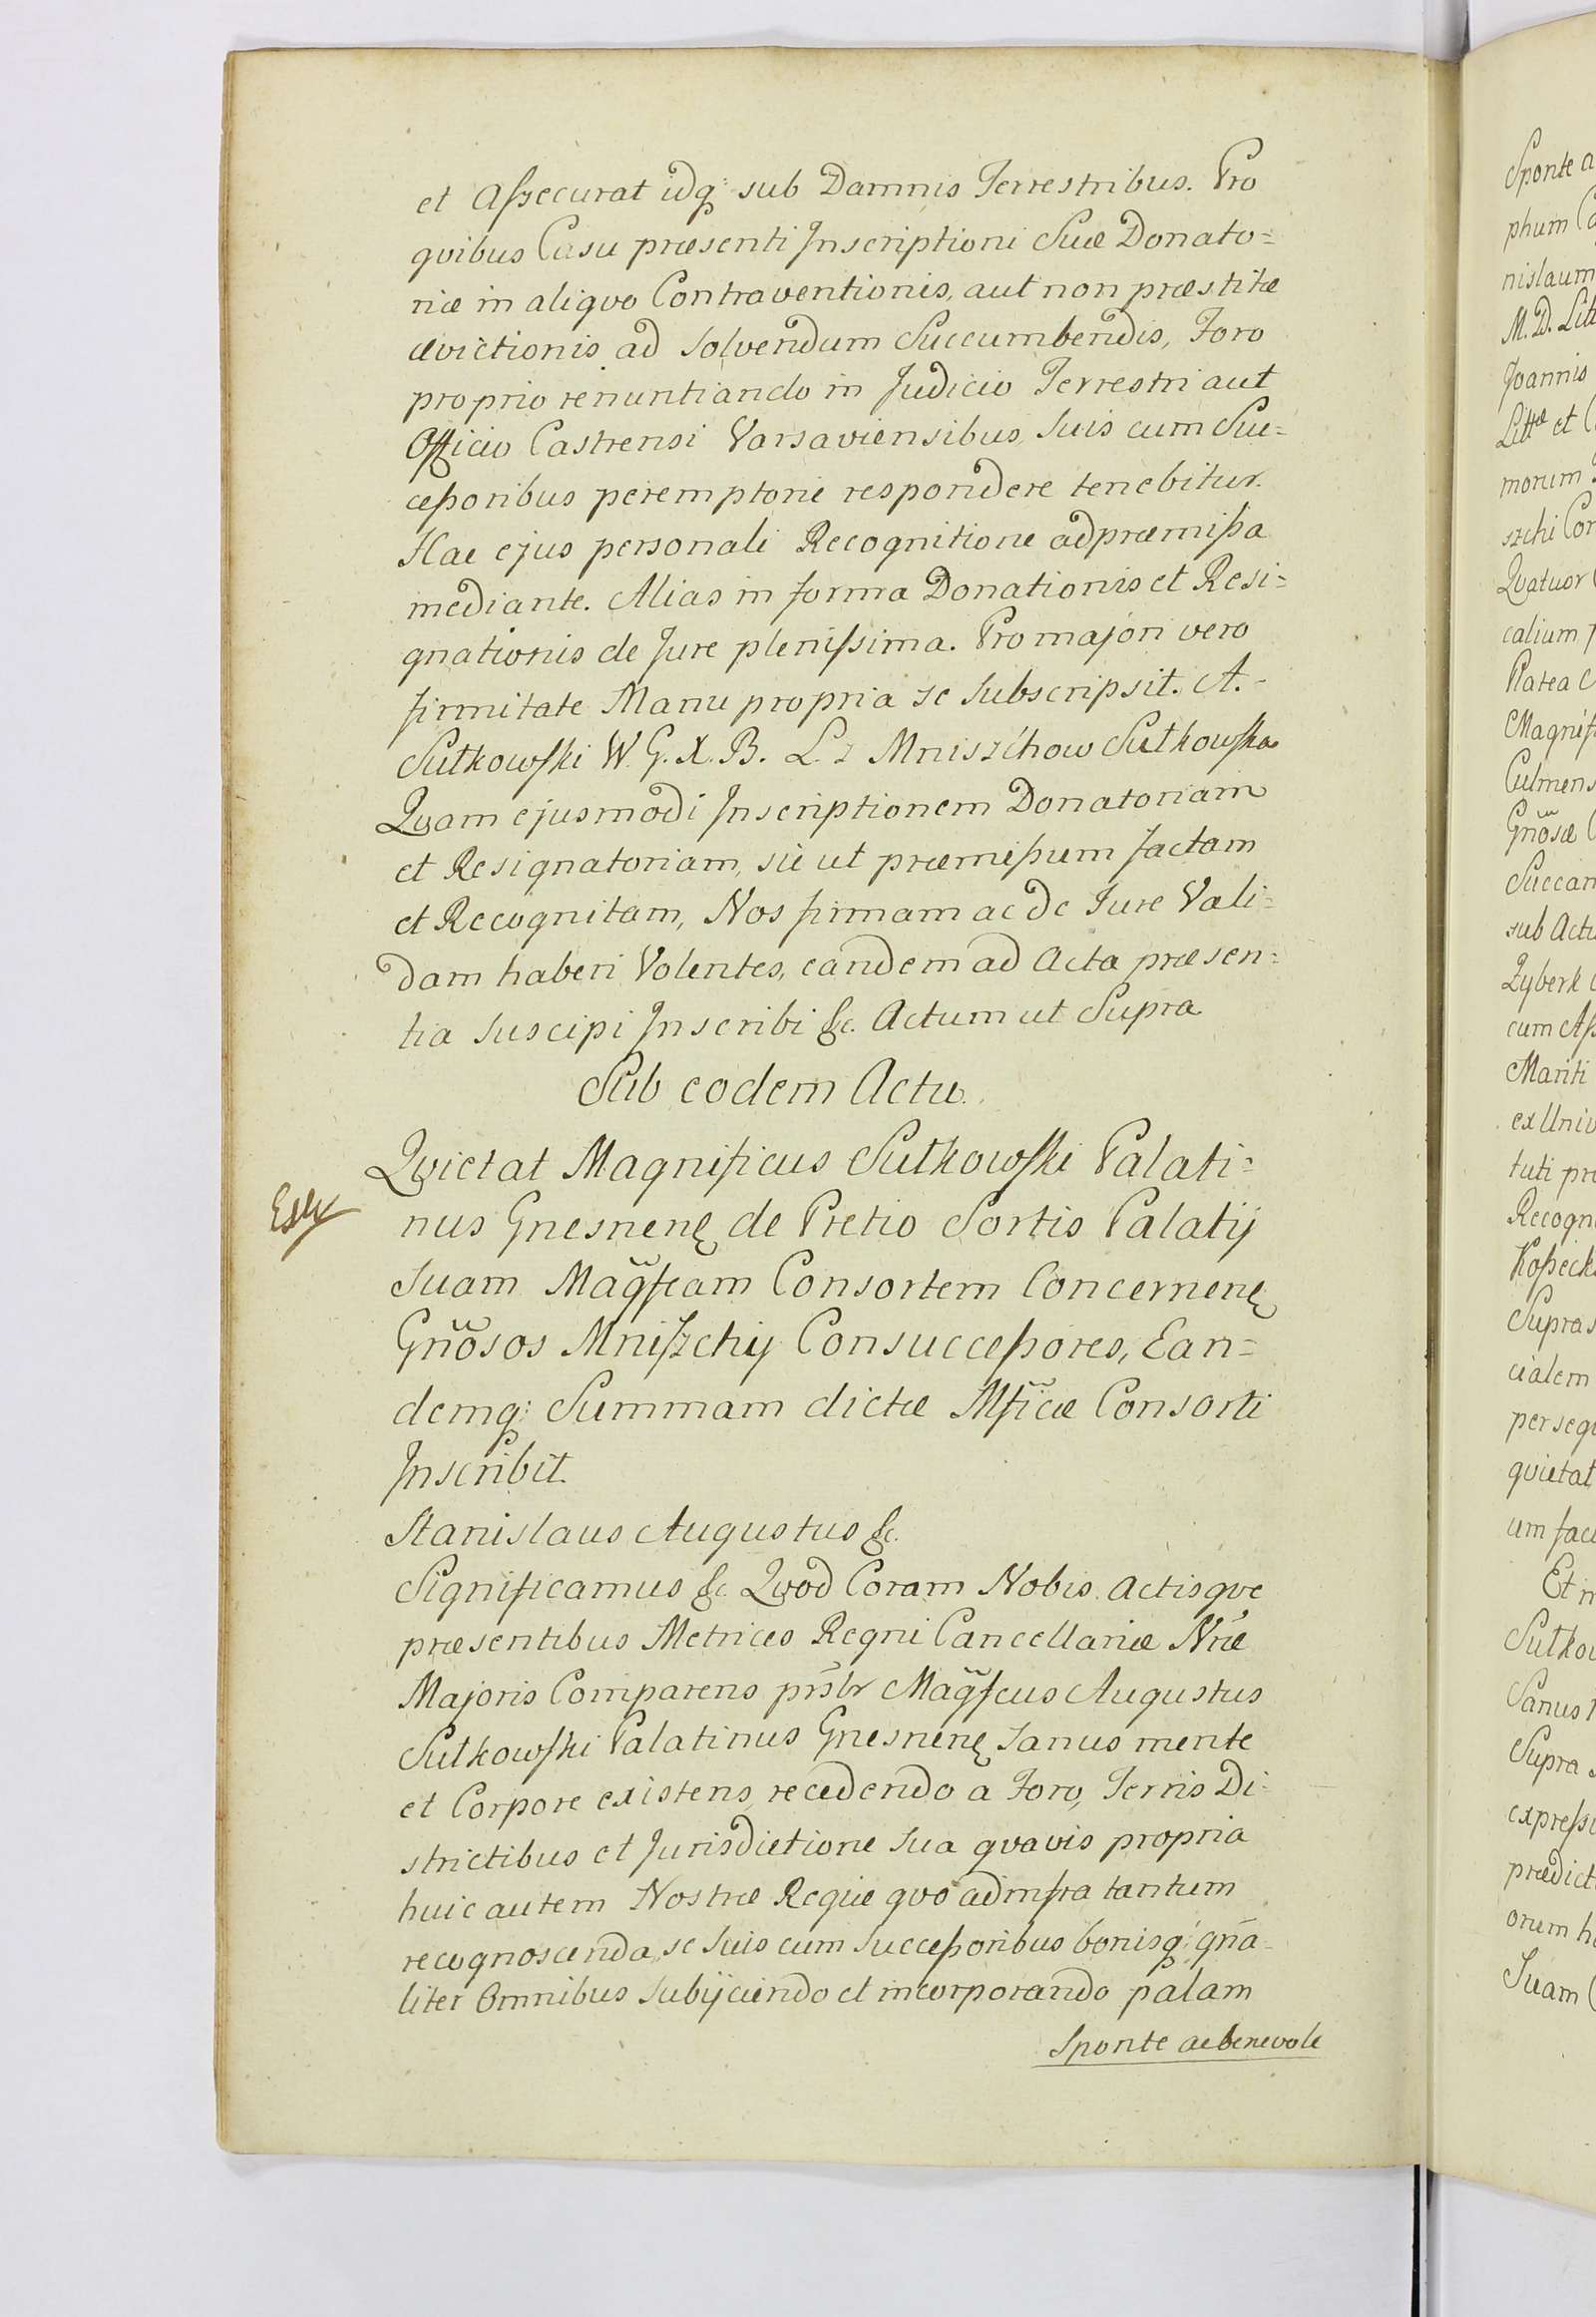 et Aſsecurat idq: sub Damnis Terrestribus. Pro
qvibus Casu præsenti Inscriptioni Suæ Donato=
riæ in aliqvo Contraventionis, aut non præstitæ
ævictionis ad solvendum Succumbendis, Foro
proprio renuntiando in Judicio Terrestri aut
Officio Castrensi Varsaviensibus, Suis cum Suc=
ceßoribus peremptorie respondere tenebitur.
Hac ejus personali Recognitione ad præmißa
mediante. Alias in forma Donationis et Resi=
gnationis de Jure pleniſsima. Pro majori vero
firmitate Manu propria se subscripsit. A.
Sułkowſki W. G. X. B. L. z Mniszchow Sułkowſka
Qvam ejusmodi Inscriptionem Donatoriam
et Resignatoriam, sic ut præmißum factam
et Recognitam, Nos firmam ac de Jure Vali=
dam haberi Volentes, eandem ad Acta præsen=
tia suscipi Inscribi &c. Actum ut Supra
Sub eodem Actu.
Qvietat Magnificus Sułkowſki Palati=
nus Gnesnenę de Pretio Sortis Palatij
suam Magfcam Consortem Concernenę
Gnosos Mniſzchij Consucceßores, Ean=
demq: Summam dictæ Mficæ Consorti
Inscribit.
Stanislaus Augustus &c.
Significamus &c. Qvod Coram Nobis Actisqve
præsentibus Metrices Regni Cancellariæ Nræ
Majoris Comparens prslr Magfcus Augustus
Sułkowſki Palatinus Gnesnenę sanus mente
et Corpore existens, recedendo a Foro, Terris Di=
strictibus et Jurisdictione sua qvavis propria
huic autem Nostræ Regiæ qvo ad infra tantum
recognoscenda, se suis cum succeßoribus bonisq: gna=
liter Omnibus subijciendo et incorporando palam
Sponte ac benevole
Sponte a
phum
nislaum
M. D. Litt
Joannis
Littæ et
morum
szchi Con
Qvatuor
calium
Platea
Magnif
Culmens
Gnosæ
sub Actu
Zyberk
cum Aß
Mariti
ex Univ
tuti pro
Recogn
Koßeck
Supra s
cialem
perseq
qvietat
um fac
Et
Sułko
Sanus
Supra
expreſs
prædict
orum h
Suam